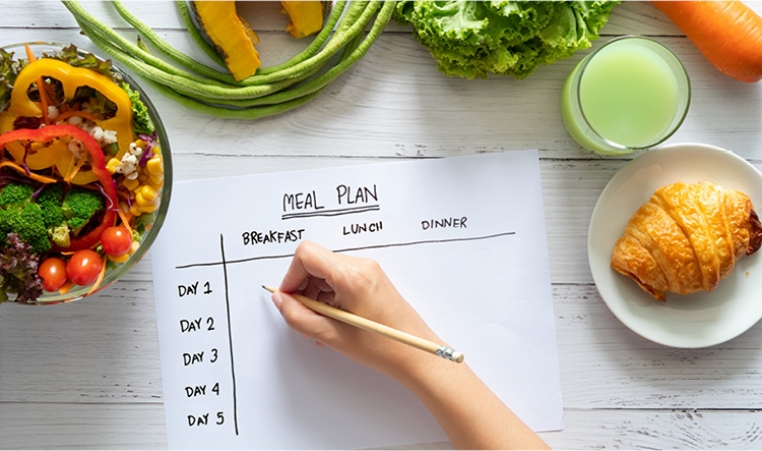 MEAL PLAN
BREAKFAST LUNCH DINNER
DAY 1
DAY 2
DAY 3
DAY 4
DAY 5